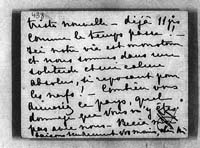 triste nouvelle – déjà 11 jrs
comme le temps passe –
Ici notre vie est monotone
et nous sommes dans une
solitude et un calme
absolus, si reposant pour
les nerfs! – Combien vous
aimeriez ce pays, quel
dommage que vous n'y êtes
pas avec nous –